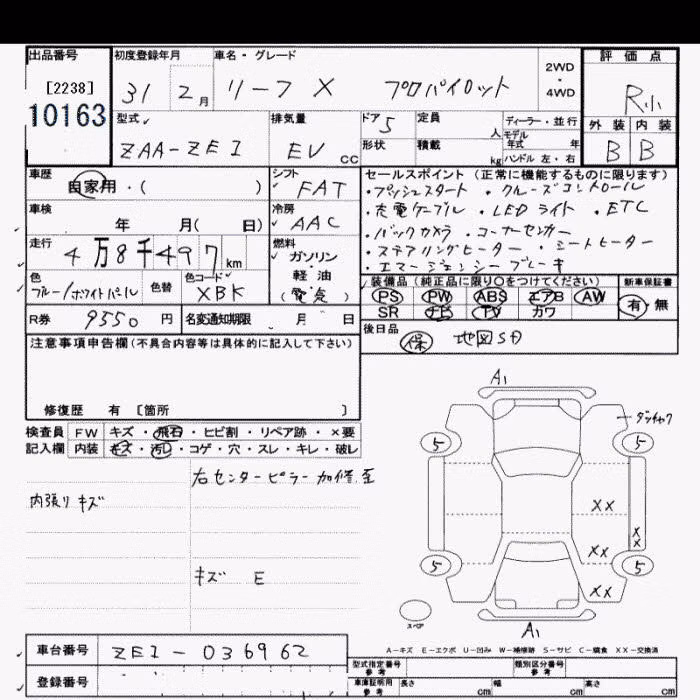 出品番号 初度登録年月 車名・グレード 評価点
[2238] 31 2月 リーフ X プロパイロット 2WD・4WD R小
10163
型式 排気量 ドア 5 定員 人 ディーラー・並行 外装 内装
ZAA-ZE1 EV CC 形状 積載 kg モデル年式 年 B B
ハンドル 左・右
車歴 シフト セールスポイント (正常に機能するものに限ります)
自家用・( ) FAT ・プッシュスタート ・クルーズコントロール
車検 冷房 ・充電ケーブル ・LEDライト ・ETC
年 月( 日) AAC ・バックカメラ ・コーナーセンサー
走行 燃料 ・ステアリングヒーター ・シートヒーター
4万8千497km ガソリン ・エマージェンシーブレーキ
色 色替 色コード 軽油 装備品 (純正品に限り○をつけてください) 新車保証書
ブルー/ホワイトパール XBK (電気) PS PW ABS エアB AW 有・無
R券 9550円 名変通知期限 月 日 SR ナビ TV カワ
後日品
保 地図SD
注意事項申告欄(不具合内容等は具体的に記入して下さい)
修復歴 有 [箇所 ]
検査員 FW キズ・飛石・ヒビ割・リペア跡・×要
記入欄 内装 キズ・汚れ・コゲ・穴・スレ・キレ・破レ
右センターピラー加修歪
内張りキズ
キズ E
A1
ダッチャク
5 5
XX
XX
XX
5 5
XX
スペア
A1
A-キズ E-エクボ U-凹み W-補修跡 S-サビ C-腐食 XX-交換済
車台番号 ZE1-036962
型式指定番号 参考 類別区分番号 参考
登録番号 車庫証明用 参考 長さ cm 幅 cm 高さ cm